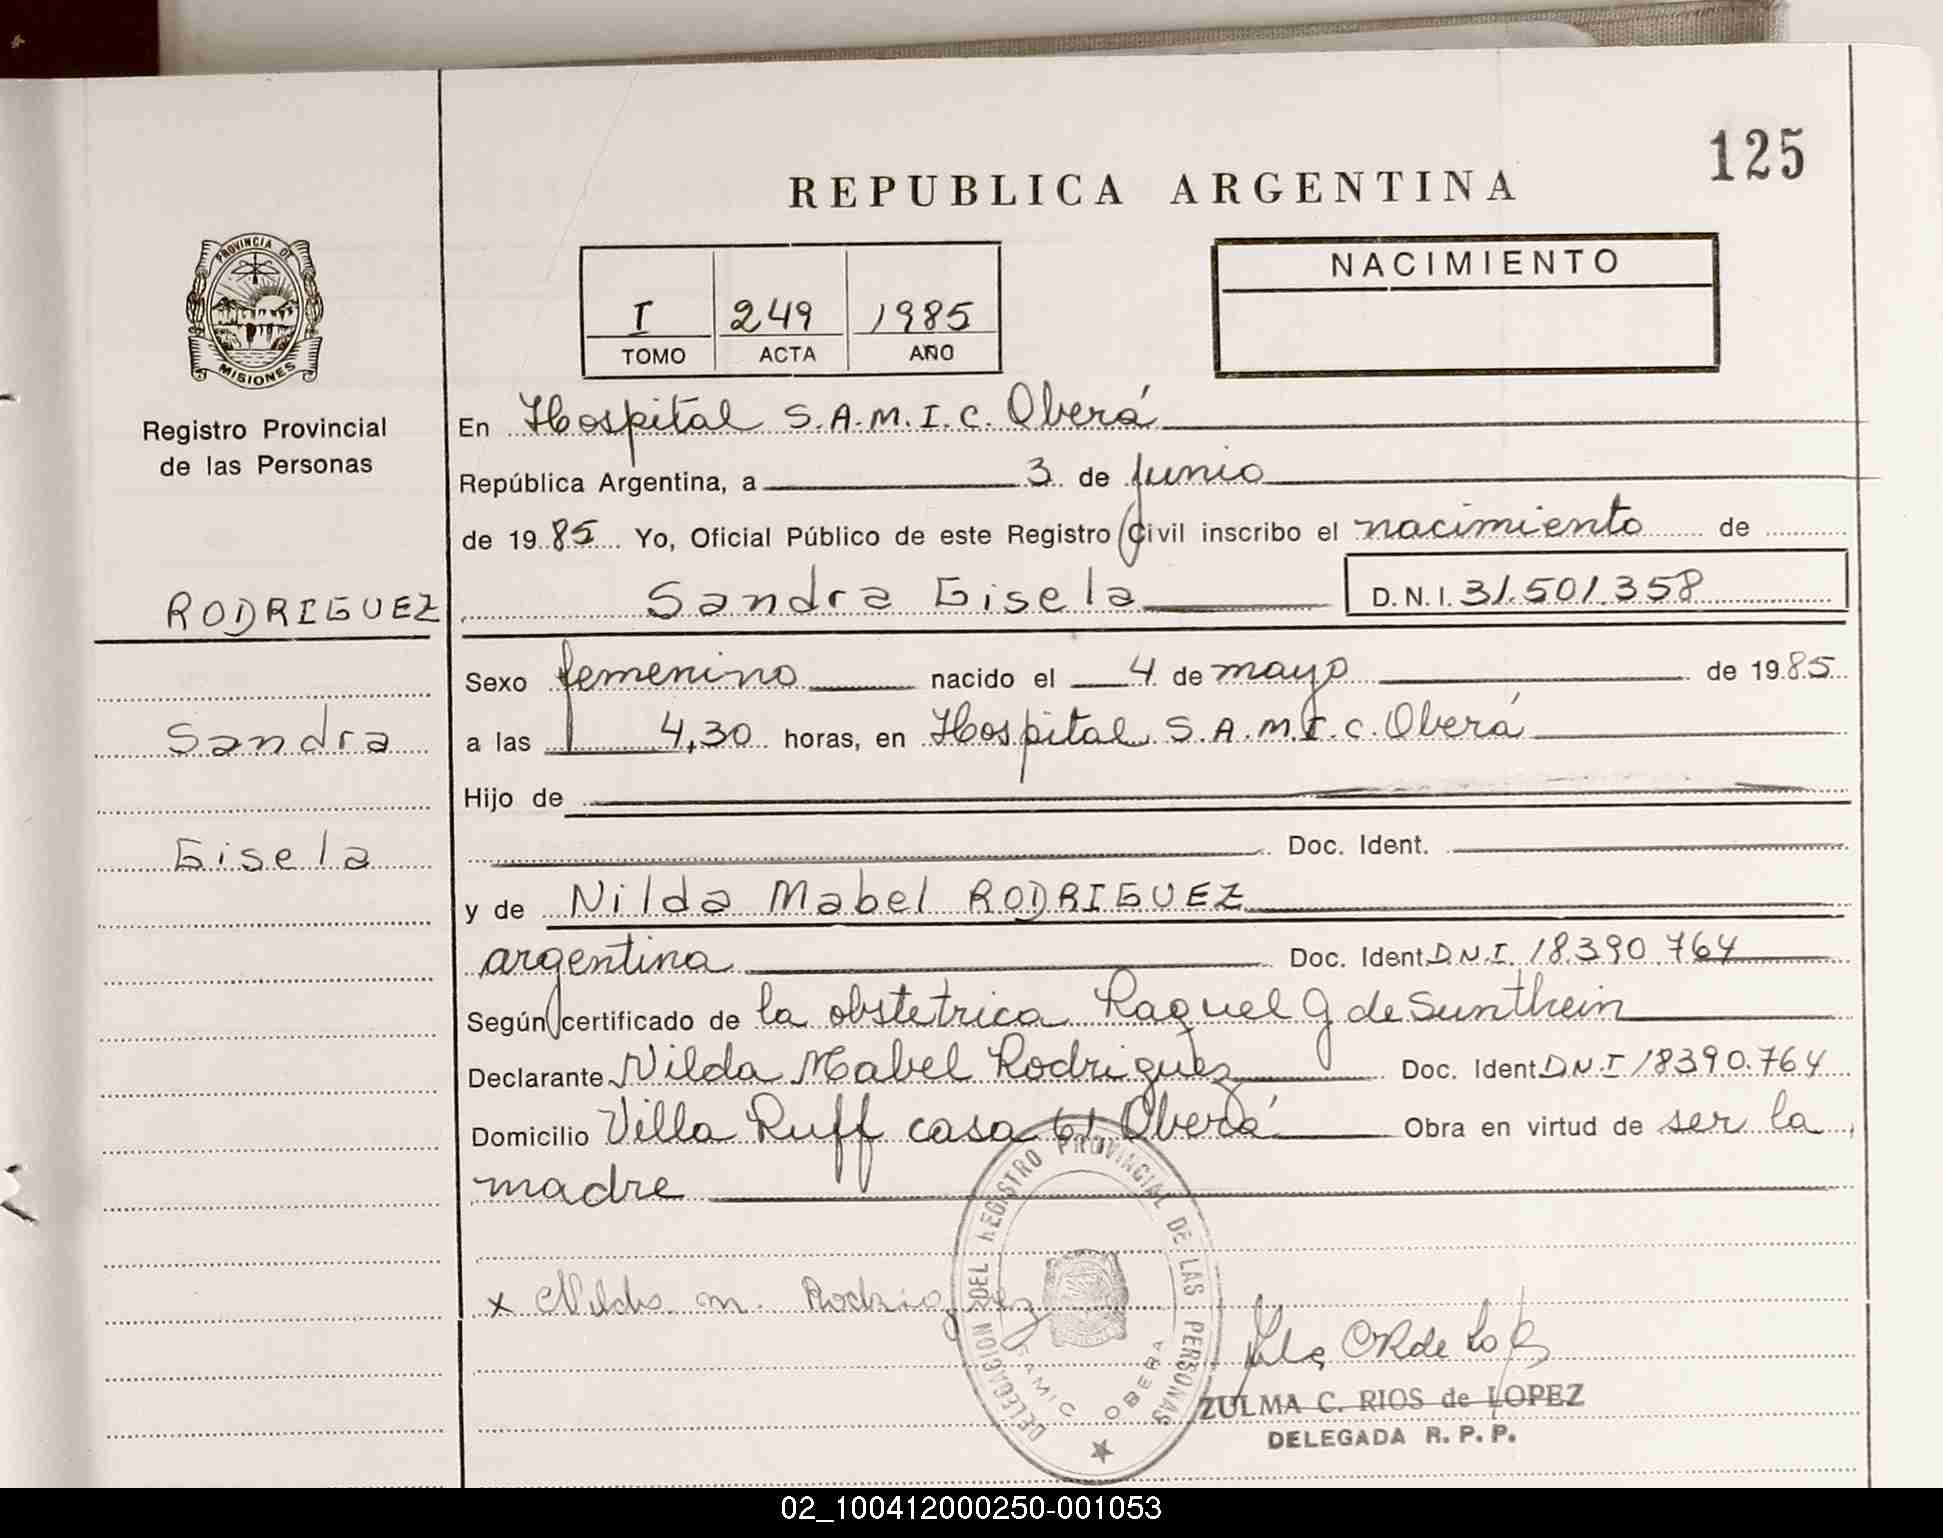 125
REPUBLICA ARGENTINA
PROVINCIA DE
MISIONES
Registro Provincial
de las Personas
I 249 1985
TOMO ACTA AÑO
NACIMIENTO
En Hospital S.A.M.I.C. Oberá
República Argentina, a 3 de Junio
de 1985 Yo, Oficial Público de este Registro Civil inscribo el nacimiento de
RODRIGUEZ
Sandra Gisela D.N.I. 31.501.358
Sexo femenino nacido el 4 de mayo de 1985
Sandra
a las 4,30 horas, en Hospital S.A.M.I.C. Oberá
Hijo de
Gisela
Doc. Ident.
y de Nilda Mabel RODRIGUEZ
argentina Doc. Ident D.N.I. 18.390.764
Según certificado de la obstetrica Raquel G de Sunthein
Declarante Nilda Mabel Rodriguez Doc. Ident D.N.I 18390.764
Domicilio Villa Ruff casa 61 Oberá Obra en virtud de ser la
madre
DELEGACION DEL REGISTRO PROVINCIAL DE LAS PERSONAS
SAMIC OBERA
x Nilda m. Rodriguez
ZULMA C. RIOS de LOPEZ
DELEGADA R. P. P.
02_100412000250-001053